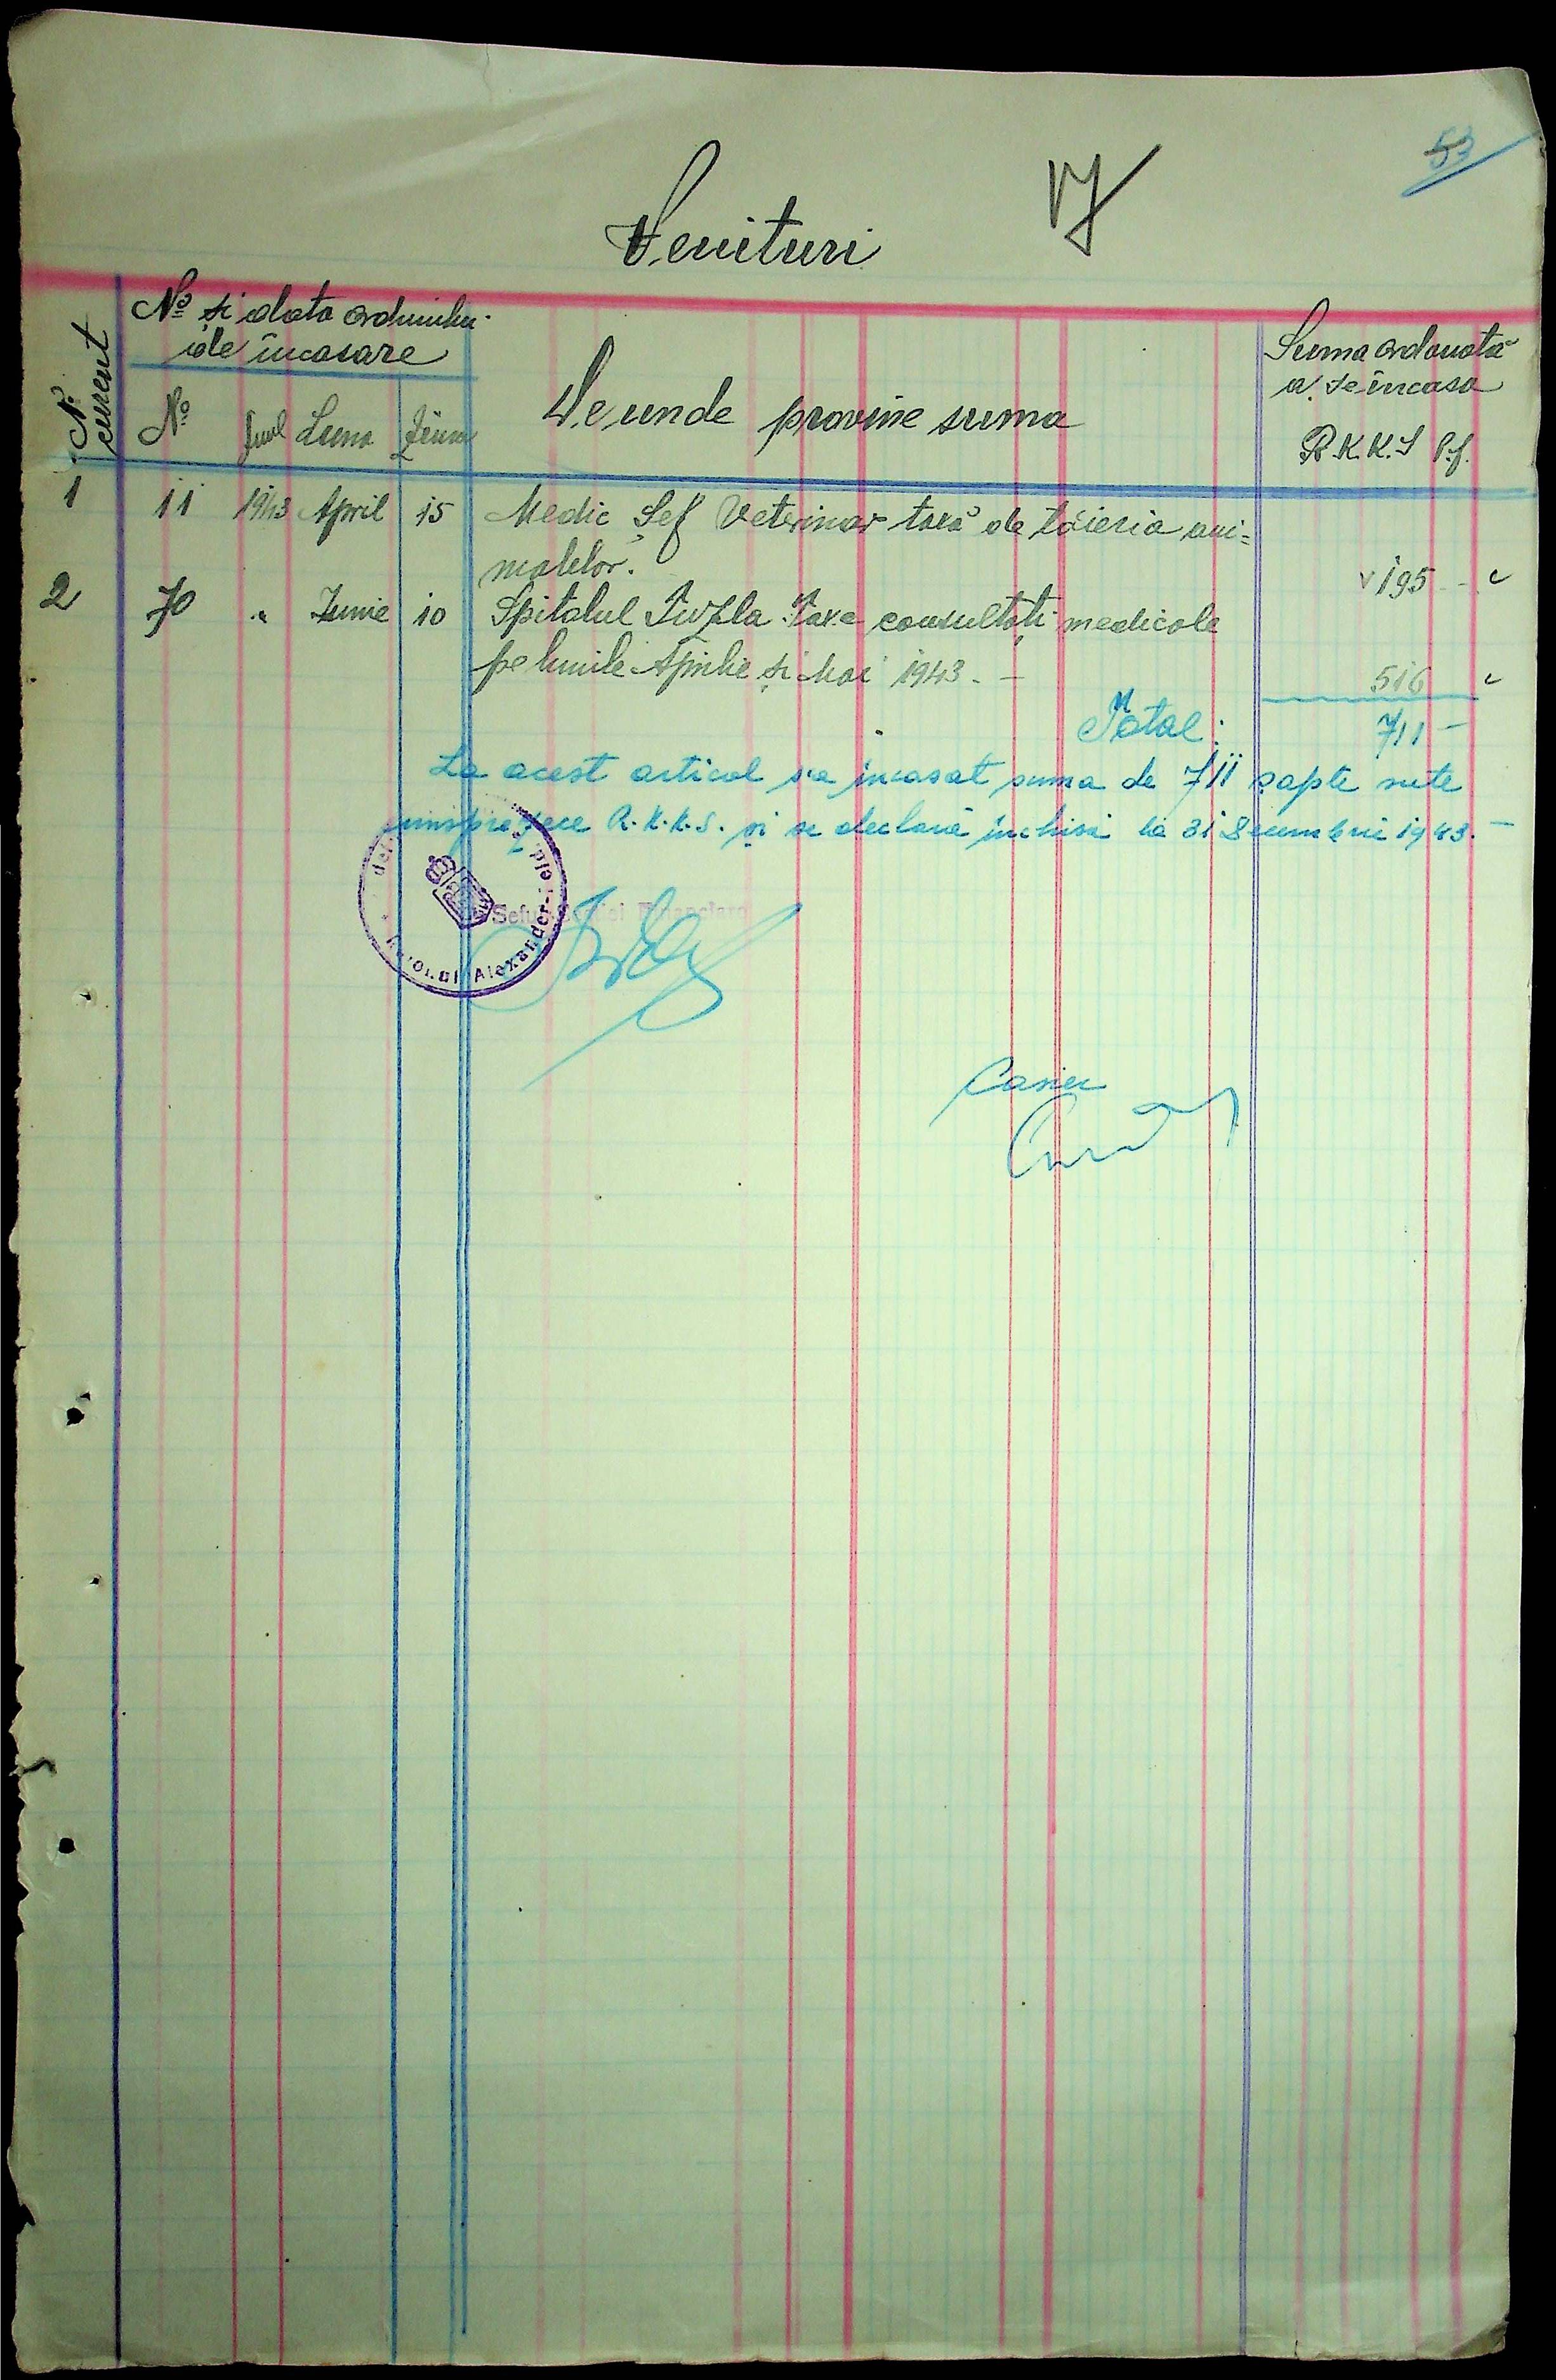 53
17
Venituri
Nº curent
Nº și data ordinului
de încasare
Nº Anul Luna Ziua
De unde provine suma
Suma ordonată
a se încasa
R.K.K.S P.f.
1 11 1943 April 15 Medic Șef Veterinar taxă de tăieria ani=
malelor. 195 -
2 70 " Iunie 10 Spitalul Suzla Taxe consultați medicale
pe lunile Aprilie și Mai 1943. - 516
Total: 711 -
La acest articol s'a incasat suma de 711 șapte sute
unsprezece R.K.K.S. și se declară inchisă la 31 Decembrie 1943. -
Raionul Alexander
Șeful Financiara
Casier